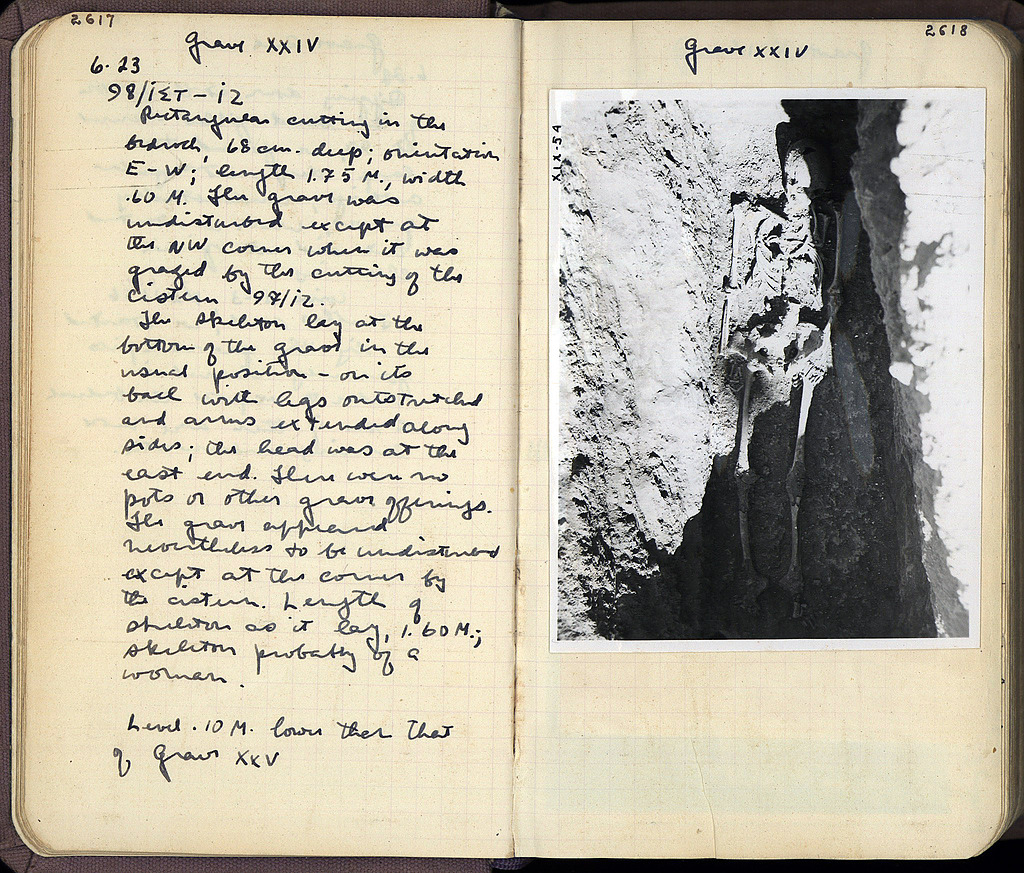 2617
Grave XXIV
6.23
98/ΙΣΤ - ΙΖ
Rectangular cutting in the
bedrock, 68 cm. deep; orientation
E-W; length 1.75 M., width
.60 M. The grave was
undisturbed except at
the NW corner where it was
grazed by the cutting of the
cistern 98/ΙΖ.
The skeleton lay at the
bottom of the grave in the
usual position - on its
back with legs outstretched
and arms extended along
sides; the head was at the
east end. There were no
pots or other grave offerings.
The grave appeared
nevertheless to be undisturbed
except at the corner by
the cistern. Length of
skeleton as it lay, 1.60 M.;
skeleton probably of a
woman.
Level .10 M. lower than that
of Grave XXV
2618
Grave XXIV
XIX-54